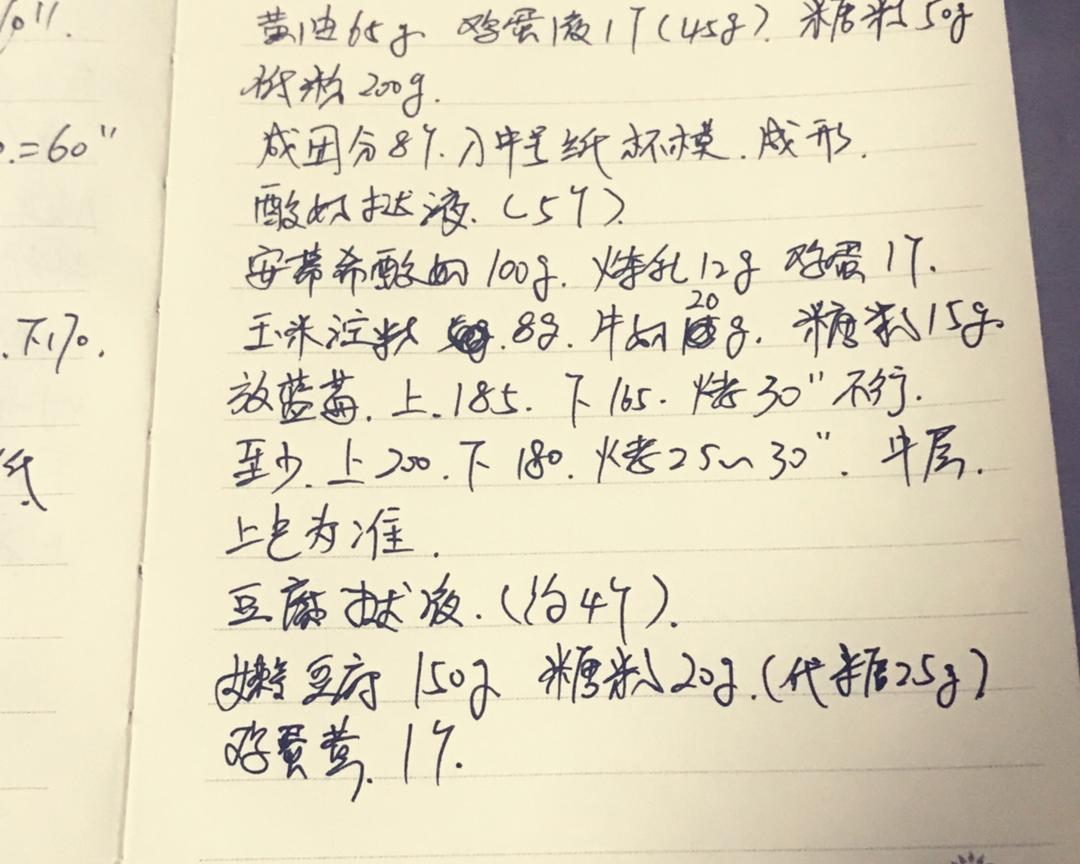 0".
0.=60"
.下170.
纸
黄油65g. 鸡蛋1液1个(45g). 糖粉50g
低粉200g.
成团分8个.入中号纸杯模.成形.
酸奶挞液.(5个).
安慕希酸奶100g.炼乳12g 鸡蛋1个.
玉米淀粉 8g.牛奶20g.糖粉15g.
放蓝莓.上.185.下165.烤30"不行.
至少.上200.下180.烤25~30".中层.
上色为准.
豆腐挞液.(约4个).
嫩豆腐150g 糖粉20g.(代糖25g)
鸡蛋黄.1个.